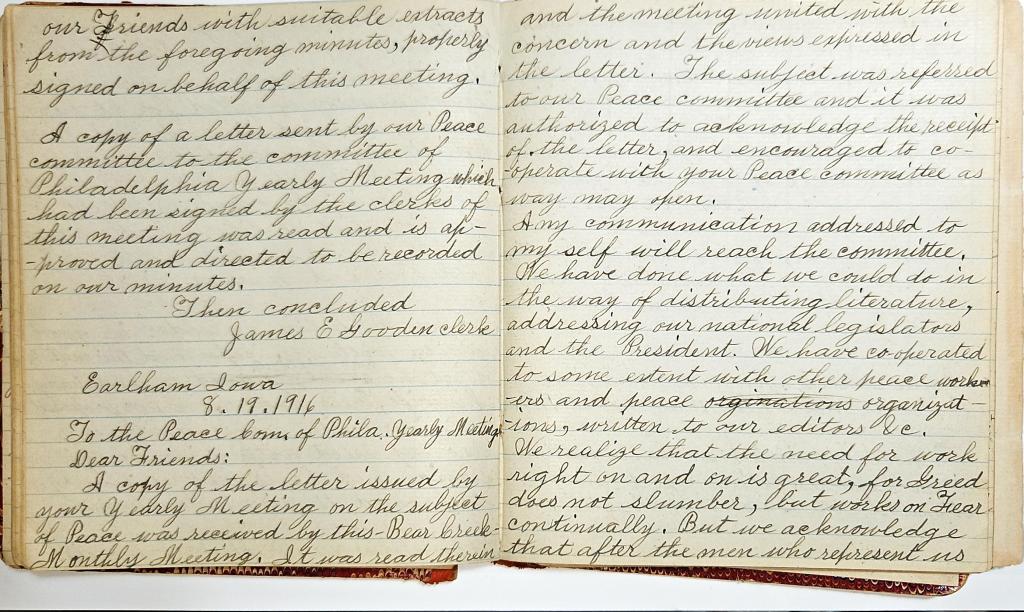 our Friends with suitable extracts
from the foregoing minutes, properly
signed on behalf of this meeting.
A copy of a letter sent by our Peace
committee to the committee of
Philadelphia Yearly Meeting which
had been signed by the clerks of
this meeting was read and is ap-
-proved and directed to be recorded
on our minutes.
Then concluded
James E Gooden clerk
Earlham Iowa
8.19.1916
To the Peace Com. of Phila. Yearly Meeting
Dear Friends:
A copy of the letter issued by
your Yearly Meeting on the subject
of Peace was received by this Bear Creek
Monthly Meeting. It was read therein
and the meeting united with the
concern and the views expressed in
the letter. The subject was referred
to our Peace committee and it was
authorized to acknowledge the receipt
of the letter, and encouraged to co-
-operate with your Peace committee as
way may open.
Any communication addressed to
my self will reach the committee.
We have done what we could do in
the way of distributing literature,
addressing our national legislators
and the President. We have co-operated
to some extent with other peace work-
-ers and peace orginations organizat-
-ions, written to our editors &c.
We realize that the need for work
right on and on is great, for Greed
does not slumber, but works on Fear
continually. But we acknowledge
that after the men who represent us